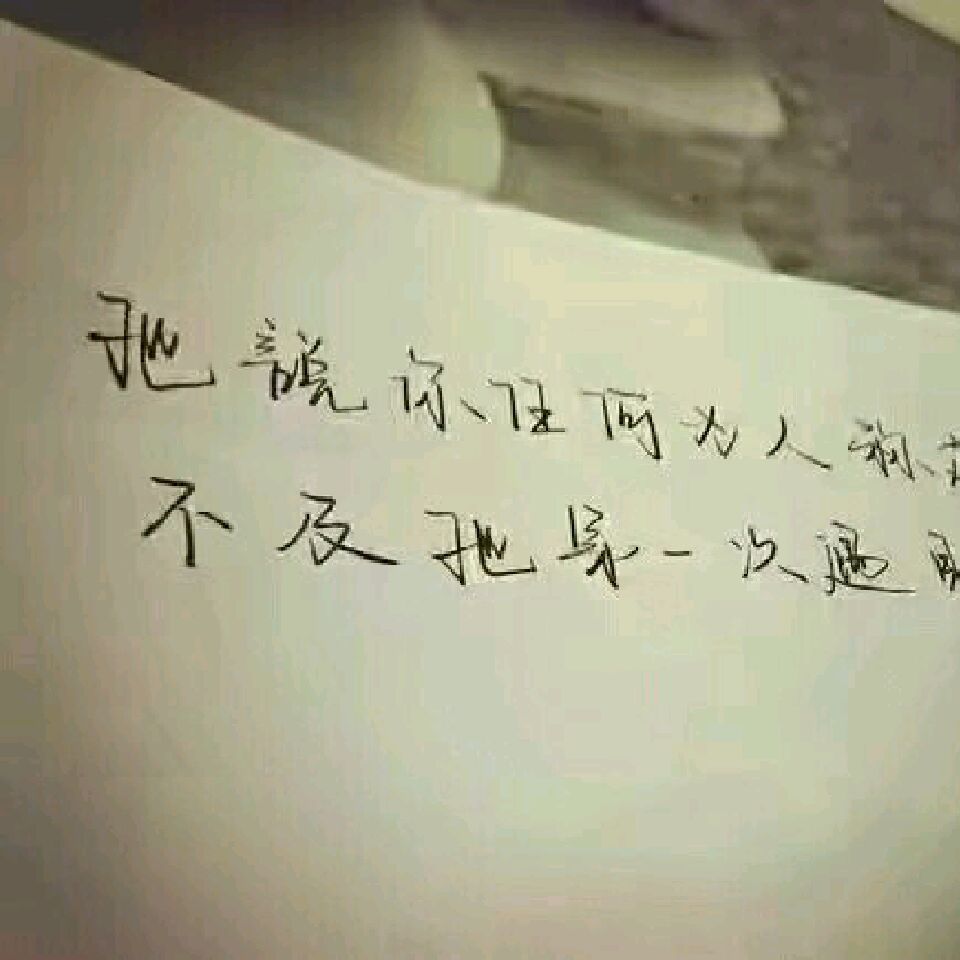 他說你任何为人称
不及他第一次遇